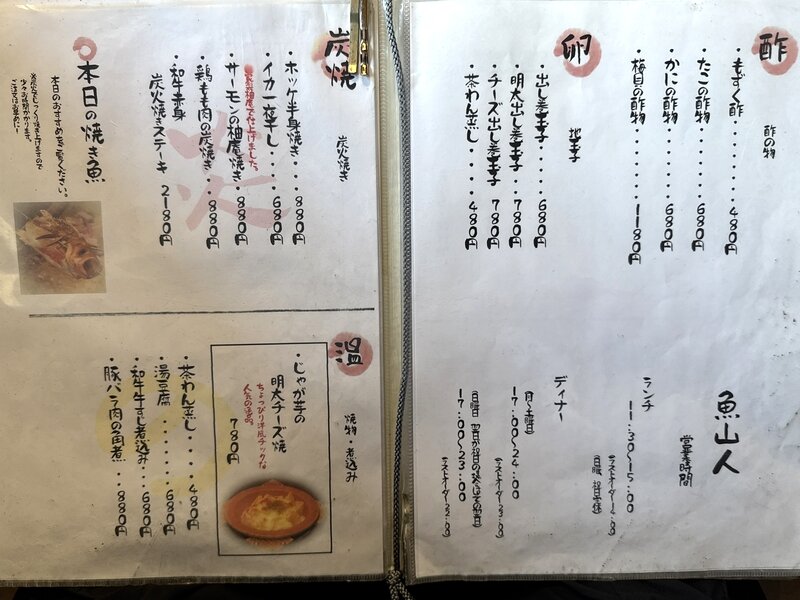 酢
酢の物
・もずく酢・・・・・・480円
・たこの酢物・・・・・680円
・かにの酢物・・・・・680円
・梅貝の酢物・・・・・1180円
卵
玉子
・出し巻玉子・・・・・680円
・明太出し巻玉子・・・780円
・チーズ出し巻玉子・・780円
・茶わん蒸し・・・・・480円
魚山人
営業時間
ランチ
11:30〜15:00
(ラストオーダー14:00)
ディナー
(月〜土曜日)
17:00〜24:00
(ラストオーダー23:00)
17:00〜23:00
(ラストオーダー22:00)
炭焼
炭火焼き
・ホッケ半身焼き・・・880円
・イカ一夜干し・・・・680円
・サーモンの柚庵焼き・880円
・鶏もも肉の炭焼き・・880円
・和牛赤身
炭火焼きステーキ 2180円
炭
本日の焼き魚
本日のおすすめをご覧ください。
炭火でじっくり焼き上げますので
少々お時間かかります。
ご注文はお早めに!
温
焼物・煮込み
・じゃが芋の
明太チーズ焼
ちょっぴり洋風チックな
人気の逸品。
780円
・茶わん蒸し・・・・480円
・湯豆腐・・・・・・680円
・和牛牛すじ煮込み・・680円
・豚バラ肉の角煮・・・880円